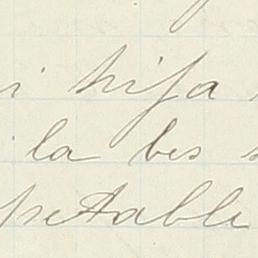 i hija
la bes
petable